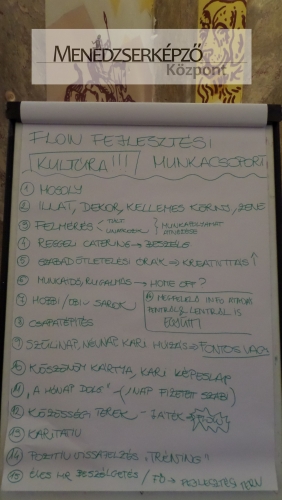 MENEDZSERKÉPZŐ
Központ
FLOW FEJLESZTÉSI
KULTÚRA!!! / MUNKACSOPORT
1 MOSOLY
2 ILLAT, DEKOR, KELLEMES KÖRNY., ZENE
3 FELMÉRÉS
4 REGGELI CATERING → BESZÉLG.
5 SZABAD ÖTLETELÉSI ÓRÁK → KREATIVITÁS ↑
6 MUNKAIDŐ RUGALMAS → HOME OFF?
7 HOBBI / SAROK
MEGFELELŐ INFO
EGYÜTT!
8 CSAPATÉPÍTÉS
9 SZÜLINAP, NÉVNAP, KARI HÚZÁS → FONTOS VAGY
10 KÖSZÖNÖM KÁRTYA, KARI KÉPESLAP
11 „A HÓNAP (1 NAP FIZETETT SZABI)
12 KÖZÖSSÉGI TEREK - JÁTÉK
13 KARITATÍV
14 POZITÍV VISSAJELZÉS „TRÉNING"
15 ÉVES HR BESZÉLGETÉS / FŐ → FEJLESZTÉSI TERV